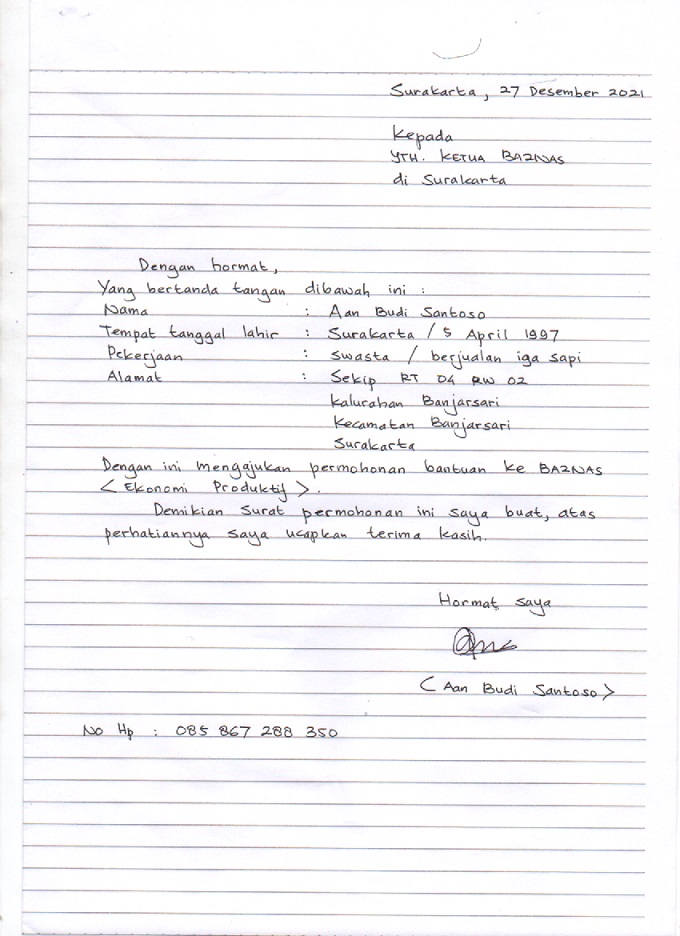 Surakarta, 27 Desember 2021
Kepada
YTH. KETUA BAZNAS
di Surakarta
Dengan hormat,
Yang bertanda tangan dibawah ini :
Nama : Aan Budi Santoso
Tempat tanggal lahir : Surakarta / 5 April 1997
Pekerjaan : swasta / berjualan iga sapi
Alamat : Sekip RT 04 RW 02
kalurahan Banjarsari
Kecamatan Banjarsari
Surakarta
Dengan ini mengajukan permohonan bantuan ke BAZNAS
< Ekonomi Produktif >.
Demikian Surat permohonan ini saya buat, atas
perhatiannya saya ucapkan terima kasih.
Hormat saya
< Aan Budi Santoso >
No Hp : 085 867 288 350